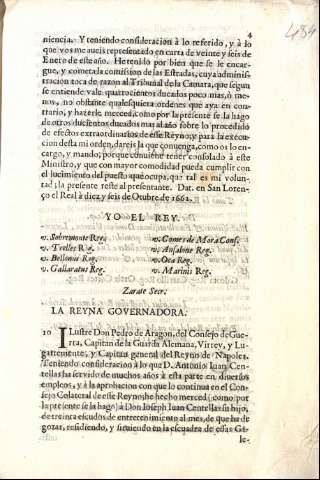 4
484
niencia. Y teniendo consideracion à lo referido, y à lo
que vos me aueis representado en carta de veinte y seis de
Enero de este año. He tenido por bien que se le encar-
gue, y cometa la comission de las Estradas, cuya adminis-
tracion toca de razon al Tribunal de la Camara, que segun
se entiende vale quatrocientos ducados poco mas, ò me-
nos, no obstante qualesquiera ordenes que aya en con-
trario, y hazerle merced, como por la presente se la hago
de otros ducientos ducados mas al año sobre lo procedido
de efectos extraordinarios de esse Reyno; y para la execu-
cion desta mi orden, dareis la que conuenga, como os lo en-
cargo, y mando, porque conuiene tener consolado à este
Ministro, y que con mayor comodidad pueda cumplir con
el lucimiento del puesto que ocupa, que tal es mi volun-
tad; la presente reste al presentante. Dat. en San Loren-
ço el Real à diez y seis de Otubre de 1662.
YO EL REY.
v. Sobremonte Reg. v. Comes de Mora Cons.
v. Trelles Reg. v. Ansalone Reg.
v. Bellonus Reg. v. Oca Reg.
v. Gallaratus Reg. v. Marinis Reg.
Zarate Secr.
LA REYNA GOVERNADORA.
10 Ilustre Don Pedro de Aragon, del Consejo de Gue-
rra, Capitan de la Guarda Alemana, Virrey, y Lu-
garteniente, y Capitan general del Reyno de Napoles.
Teniendo consideracion à lo que D. Antonio Iuan Cen-
tellas ha servido de muchos años à esta parte en diversos
empleos, y à la aprobacion con que lo continua en el Con-
sejo Colateral de esse Reyno he hecho merced (como por
la presente se la hago) à Don Ioseph Iuan Centellas su hijo,
de treinta escudos de entretenimiento al mes, de que ha de
gozar, residiendo, y siruiendo en la escuadra de essas Ga-
le-